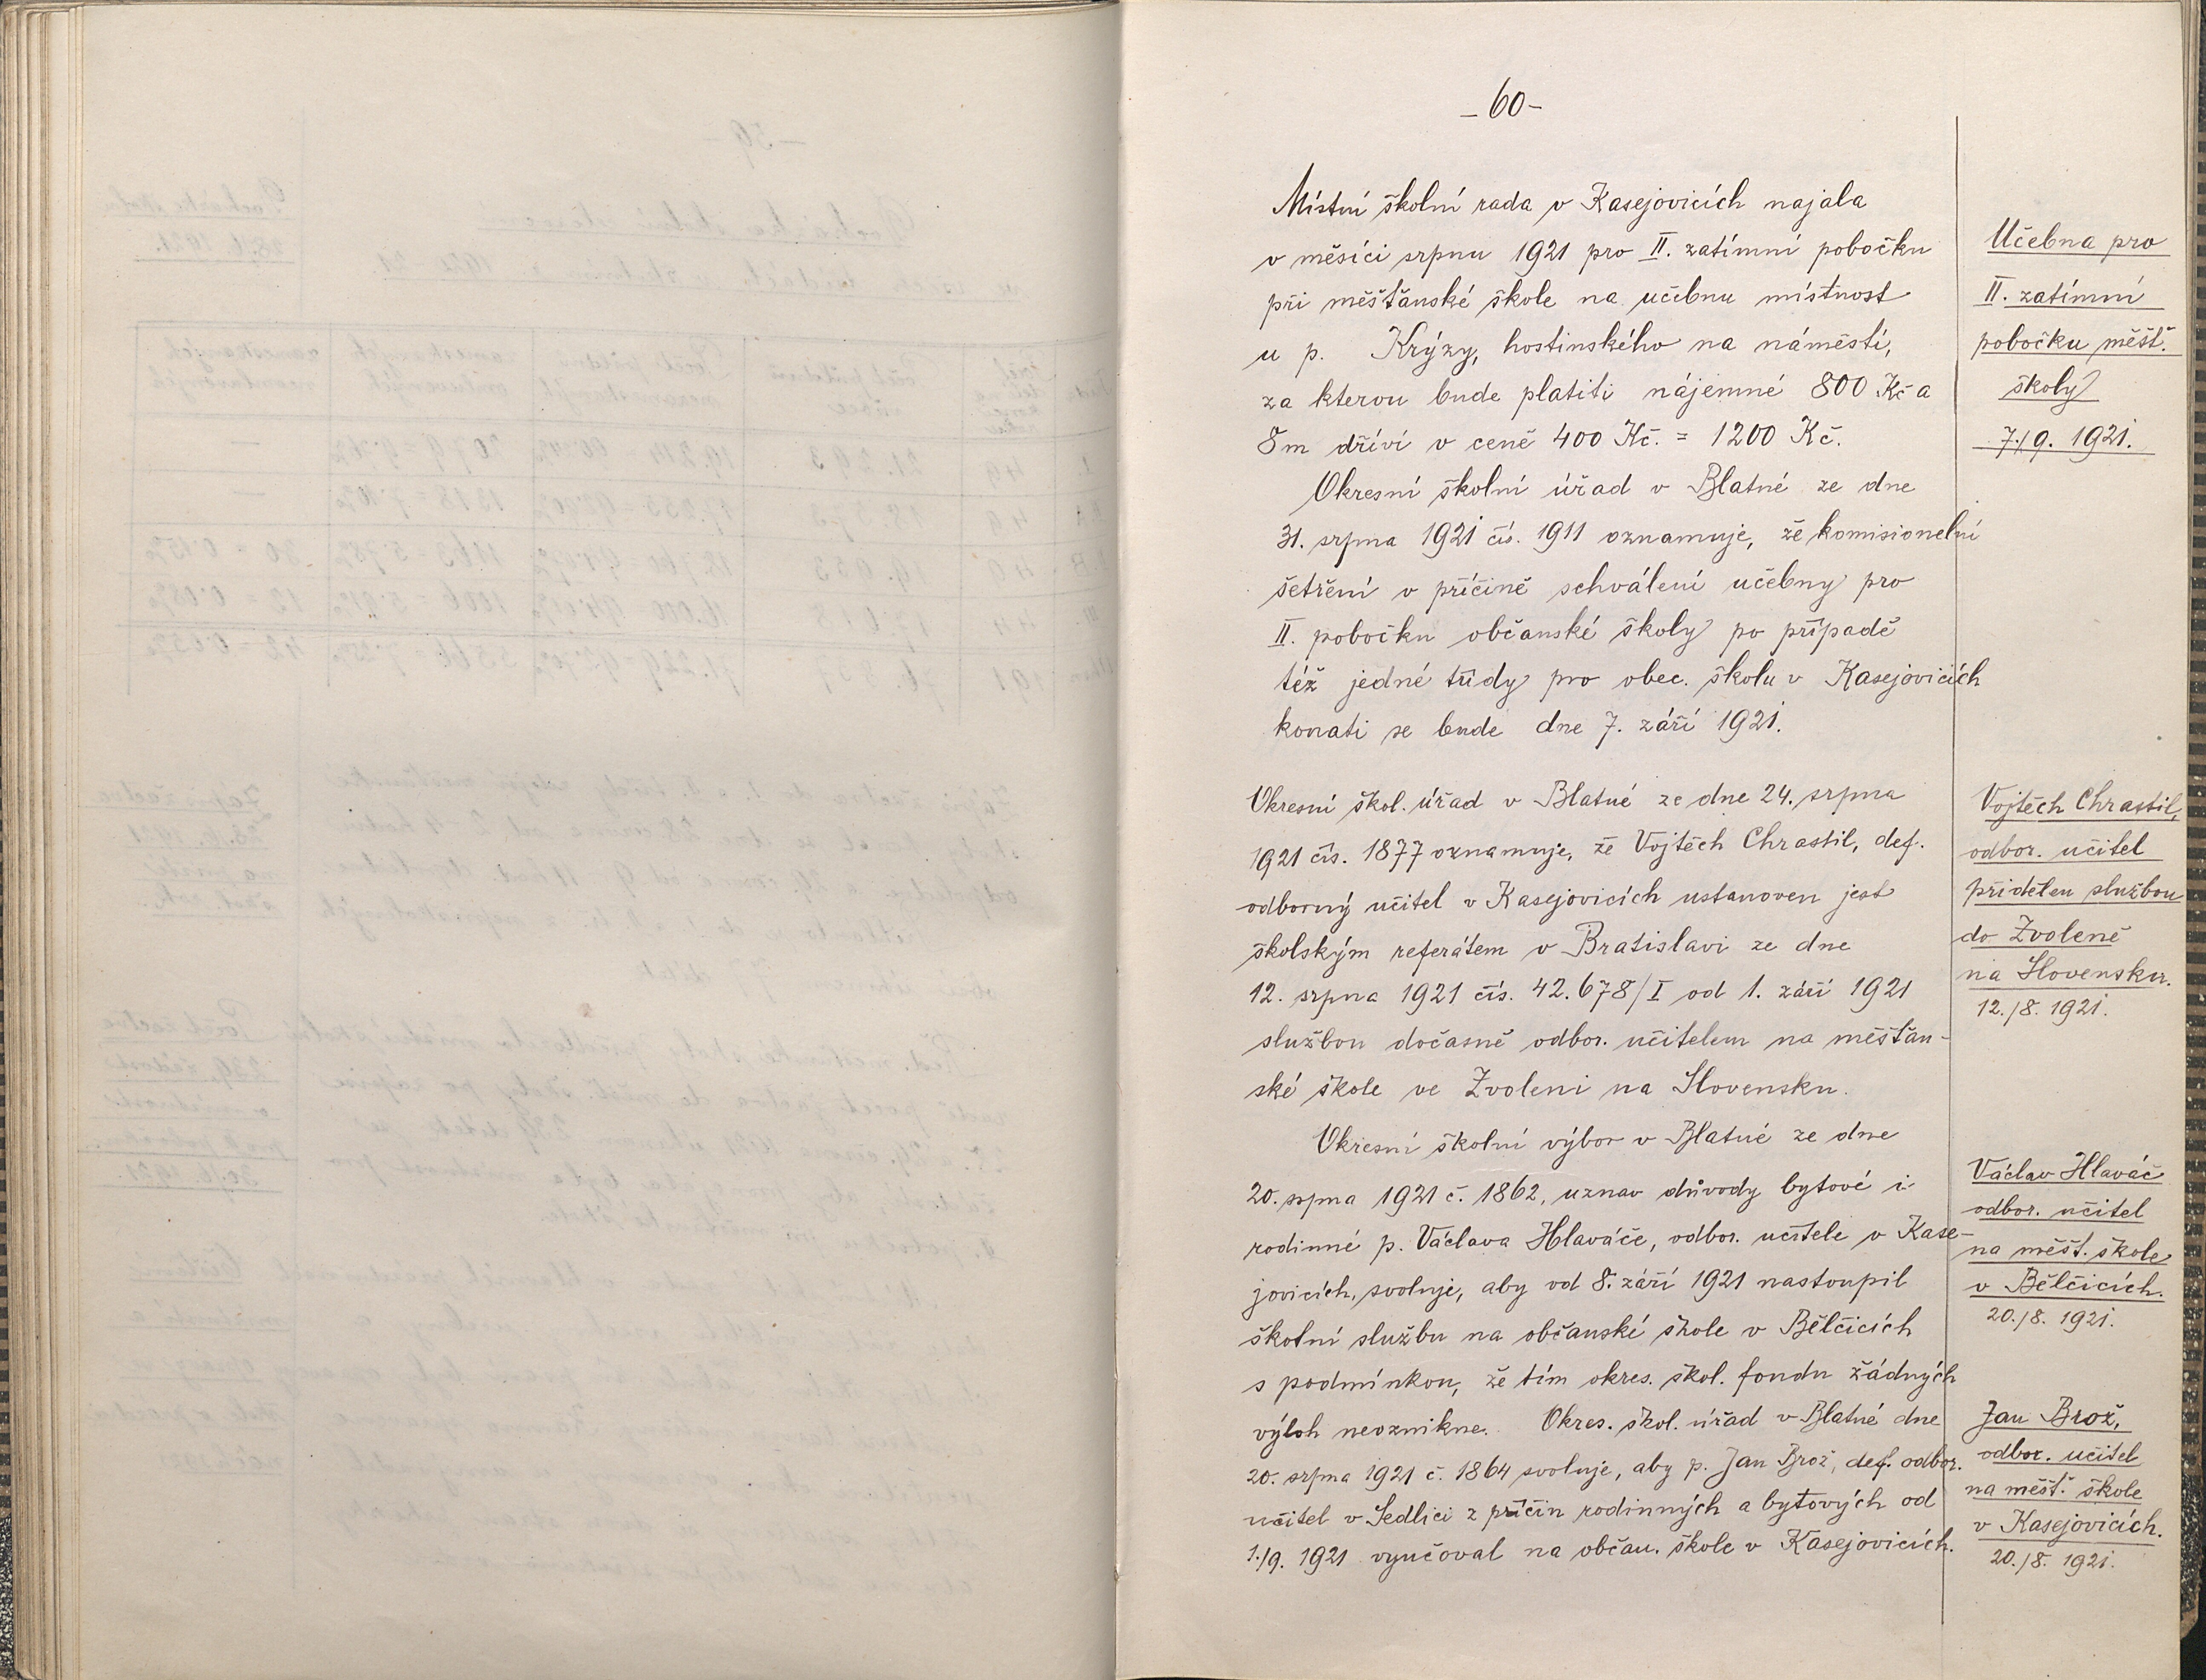 -60-
Místní školní rada v Kasejovicích najala
v měsíci srpnu 1921 pro II. zatímní pobočku
při měšťanské škole na učebnu místnost
u p. Krýzy, hostinského na náměstí,
za kterou bude platiti nájemné 800 Kč a
8m dříví v ceně 400 Kč. = 1200 Kč.
Okresní školní úřad v Blatné ze dne
31. srpna 1921 čís. 1911 oznamuje, že komisionelní
šetření v příčině schválení učebny pro
II. pobočku občanské školy po případě
též jedné třídy pro obec. školu v Kasejovicích
konati se bude dne 7. září 1921.
Učebna pro
II. zatímní
pobočku měšť.
školy
7./9. 1921.
Okresní škol. úřad v Blatné ze dne 24. srpna
1921 čís. 1877 oznamuje, že Vojtěch Chrastil, def.
odborný učitel v Kasejovicích ustanoven jest
školským referátem v Bratislavi ze dne
12. srpna 1921 čís. 42.678/I od 1. září 1921
službou dočasně odbor. učitelem na měšťan-
ské škole ve Zvoleni na Slovensku.
Vojtěch Chrastil,
odbor. učitel
přidělen službou
do Zvoleně
na Slovensku.
12./8. 1921.
Okresní školní výbor v Blatné ze dne
20. srpna 1921 č. 1862, uznav důvody bytové i
rodinné p. Václava Hlaváče, odbor. učitele v Kase-
jovicích, svoluje, aby od 8. září 1921 nastoupil
školní službu na občanské škole v Bělčicích
s podmínkou, že tím okres. škol. fondu žádných
výloh nevznikne. Okres. škol. úřad v Blatné dne
20. srpna 1921 č. 1864 svoluje, aby p. Jan Brož, def. odbor.
učitel v Sedlici z příčin rodinných a bytových od
1./9. 1921 vyučoval na občan. škole v Kasejovicích.
Václav Hlaváč
odbor. učitel
na měšť. škole
v Bělčicích.
20./8. 1921.
Jan Brož,
odbor. učitel
na měšť. škole
v Kasejovicích.
20./8. 1921.